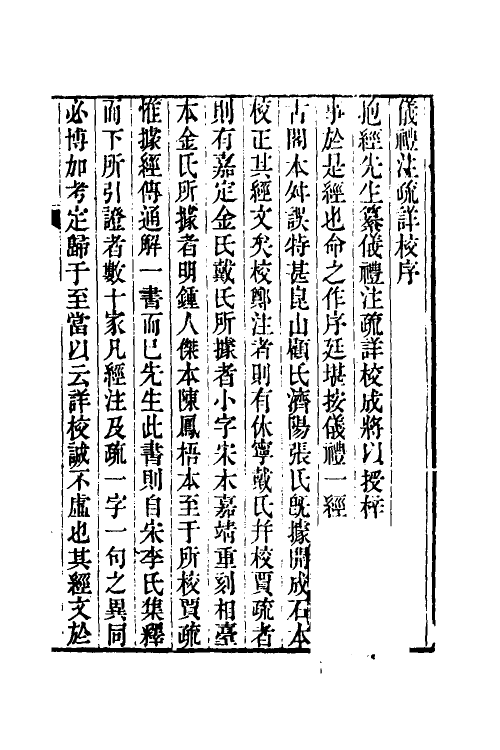 儀禮注疏詳校序
抱經先生纂儀禮注疏詳校成將以授梓
事於是經也命之作序廷堪按儀禮一經
古閣本舛誤特甚崑山顧氏濟陽張氏旣據開成石本
校正其經文矣校鄭注者則有休寧戴氏幷校賈疏者
則有嘉定金氏戴氏所據者小字宋本嘉靖重刻相臺
本金氏所據者明鍾人傑本陳鳳梧本至于所校賈疏
惟據經傳通解一書而已先生此書則自宋李氏集釋
而下所引證者數十家凡經注及疏一字一句之異同
必博加考定歸于至當以云詳校誠不虛也其經文於